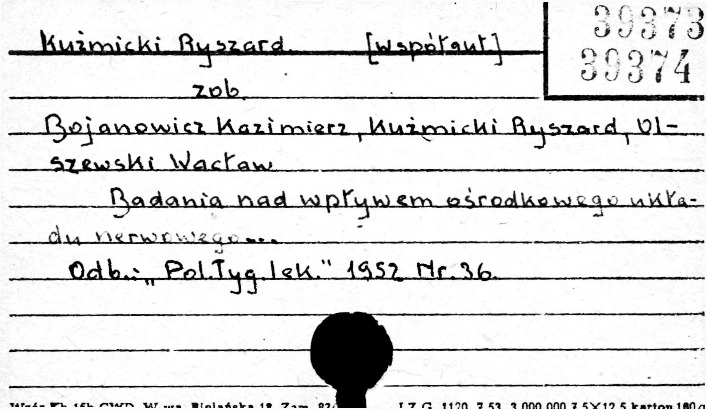 39373
Kuźmicki Ryszard [współaut]
39374
zob.
Bojanowicz Kazimierz, Kuźmicki Ryszard, Ol-
szewski Wacław
Badania nad wpływem ośrodkowego ukła-
du nerwowego...
Odb.: „Pol.Tyg.lek." 1952 Nr. 36.
Zam. I Z G. 1120 7.53 3.000.000 7.5×12.5 karton 180 g